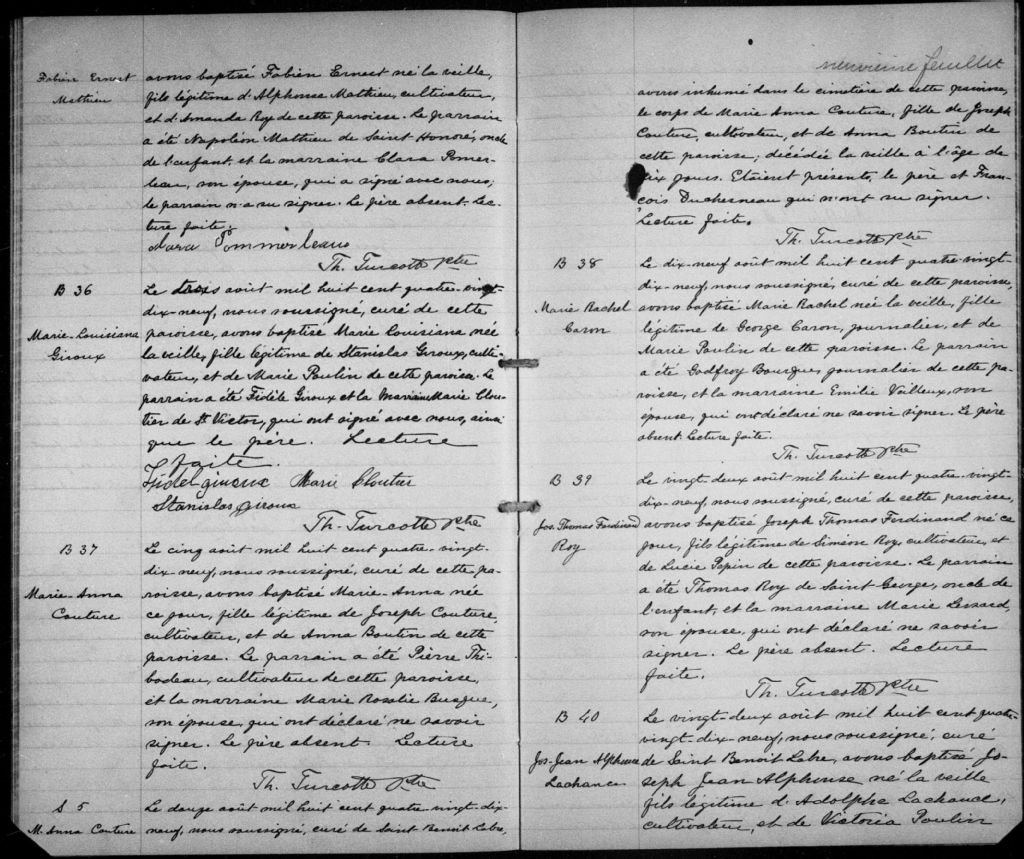 Fabien Ernest
Mathieu
avons baptisé Fabien Ernest né la veille,
fils légitime d'Alphonse Mathieu, cultivateur,
et d'Amanda Roy de cette paroisse. Le parrain
a été Napoléon Mathieu de Saint Honoré, oncle
de l'enfant, et la marraine Clara Pomer-
leau, son épouse, qui a signé avec nous;
le parrain n'a su signer. Le père absent. Lec-
ture faite.
Clara Pommerleau
Th. Turcotte Ptre
B 36
Marie-Louisiana
Giroux
Le trois août mil huit cent quatre-vingt-
dix-neuf, nous soussigné, curé de cette
paroisse, avons baptisé Marie Louisiana née
la veille, fille légitime de Stanislas Giroux, culti-
vateur, et de Marie Poulin de cette paroisse. Le
parrain a été Fidèle Giroux et la marraine Marie Clou-
tier de St Victor, qui ont signé avec nous, ainsi
que le père. Lecture
faite.
Fidel giroux Marie Cloutier
Stanislas giroux
Th. Turcotte Ptre
B 37
Marie-Anna
Couture
Le cinq août mil huit cent quatre-vingt-
dix-neuf, nous soussigné, curé de cette pa-
roisse, avons baptisé Marie-Anna née
ce jour, fille légitime de Joseph Couture,
cultivateur, et de Anna Boutin de cette
paroisse. Le parrain a été Pierre Thi-
bodeau, cultivateur de cette paroisse,
et la marraine Marie Rosalie Busque,
son épouse, qui ont déclaré ne savoir
signer. Le père absent. Lecture
faite.
Th. Turcotte Ptre
S 5
M. Anna Couture
Le douze août mil huit cent quatre-vingt-dix-
neuf, nous soussigné, curé de Saint Benoit Labre,
neuvième feuillet
avons inhumé dans le cimetière de cette paroisse,
le corps de Marie Anna Couture, fille de Joseph
Couture, cultivateur, et de Anna Boutin de
cette paroisse; décédée la veille à l'âge de
six jours. Etaient présents, le père et Fran-
çois Duchesneau qui n'ont su signer.
Lecture faite.
Th. Turcotte Ptre
B 38
Marie Rachel
Caron
Le dix-neuf août mil huit cent quatre-vingt-
dix-neuf, nous soussigné, curé de cette paroisse,
avons baptisé Marie Rachel née la veille, fille
légitime de George Caron, journalier, et de
Marie Poulin de cette paroisse. Le parrain
a été Godfroy Bourque, journalier de cette pa-
roisse, et la marraine Emilie Veilleux, son
épouse, qui ont déclaré ne savoir signer. Le père
absent. Lecture faite.
Th. Turcotte Ptre
B 39
Jos. Thomas Ferdinand
Roy
Le vingt-deux août mil huit cent quatre-vingt-
dix-neuf, nous soussigné, curé de cette paroisse,
avons baptisé Joseph Thomas Ferdinand né ce
jour, fils légitime de Siméon Roy, cultivateur, et
de Lucie Pepin de cette paroisse. Le parrain
a été Thomas Roy de Saint George, oncle de
l'enfant, et la marraine Marie Lessard,
son épouse, qui ont déclaré ne savoir
signer. Le père absent. Lecture
faite.
Th. Turcotte Ptre
B 40
Jos-Jean Alphonse
Lachance
Le vingt-deux août mil huit cent quatre-
vingt-dix-neuf, nous soussigné, curé
de Saint Benoit Labre, avons baptisé Jo-
seph Jean Alphonse né la veille
fils légitime d'Adolphe Lachance,
cultivateur, et de Victoria Poulin